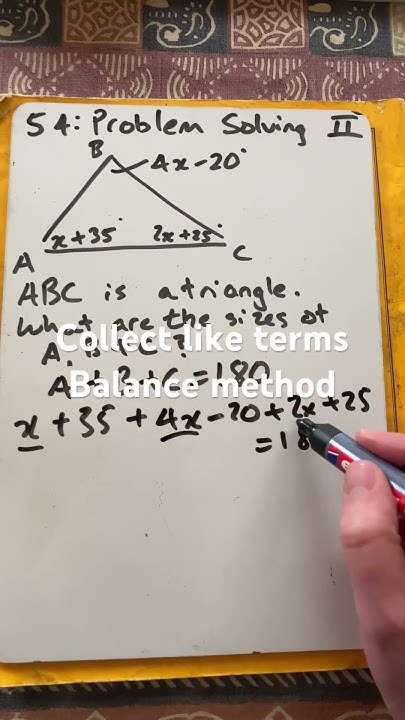 54: Problem Solving II
B
4x-20°
x+35°
2x+25°
A
C
ABC is a triangle.
What are the sizes of
A, B, C?
Collect like terms
A+B+C=180
Balance method
x+35+4x-20+2x+25
=18